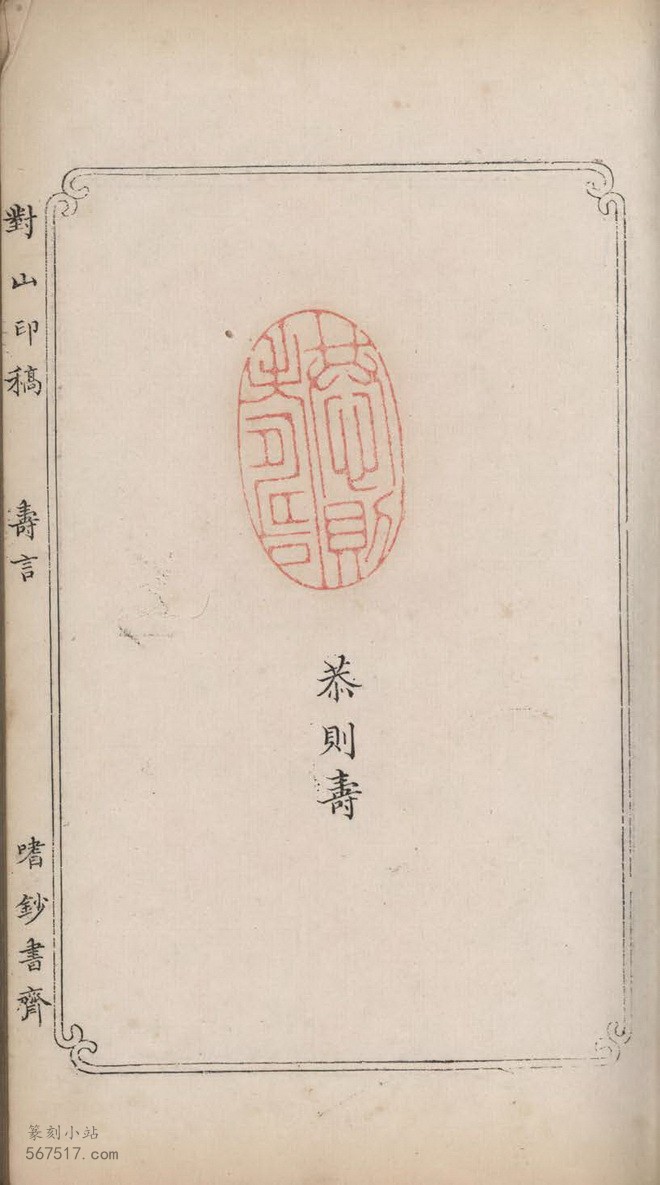 恭則壽
恭則壽
對山印稿 壽言 嗜鈔書齊
篆刻小站
567517.com